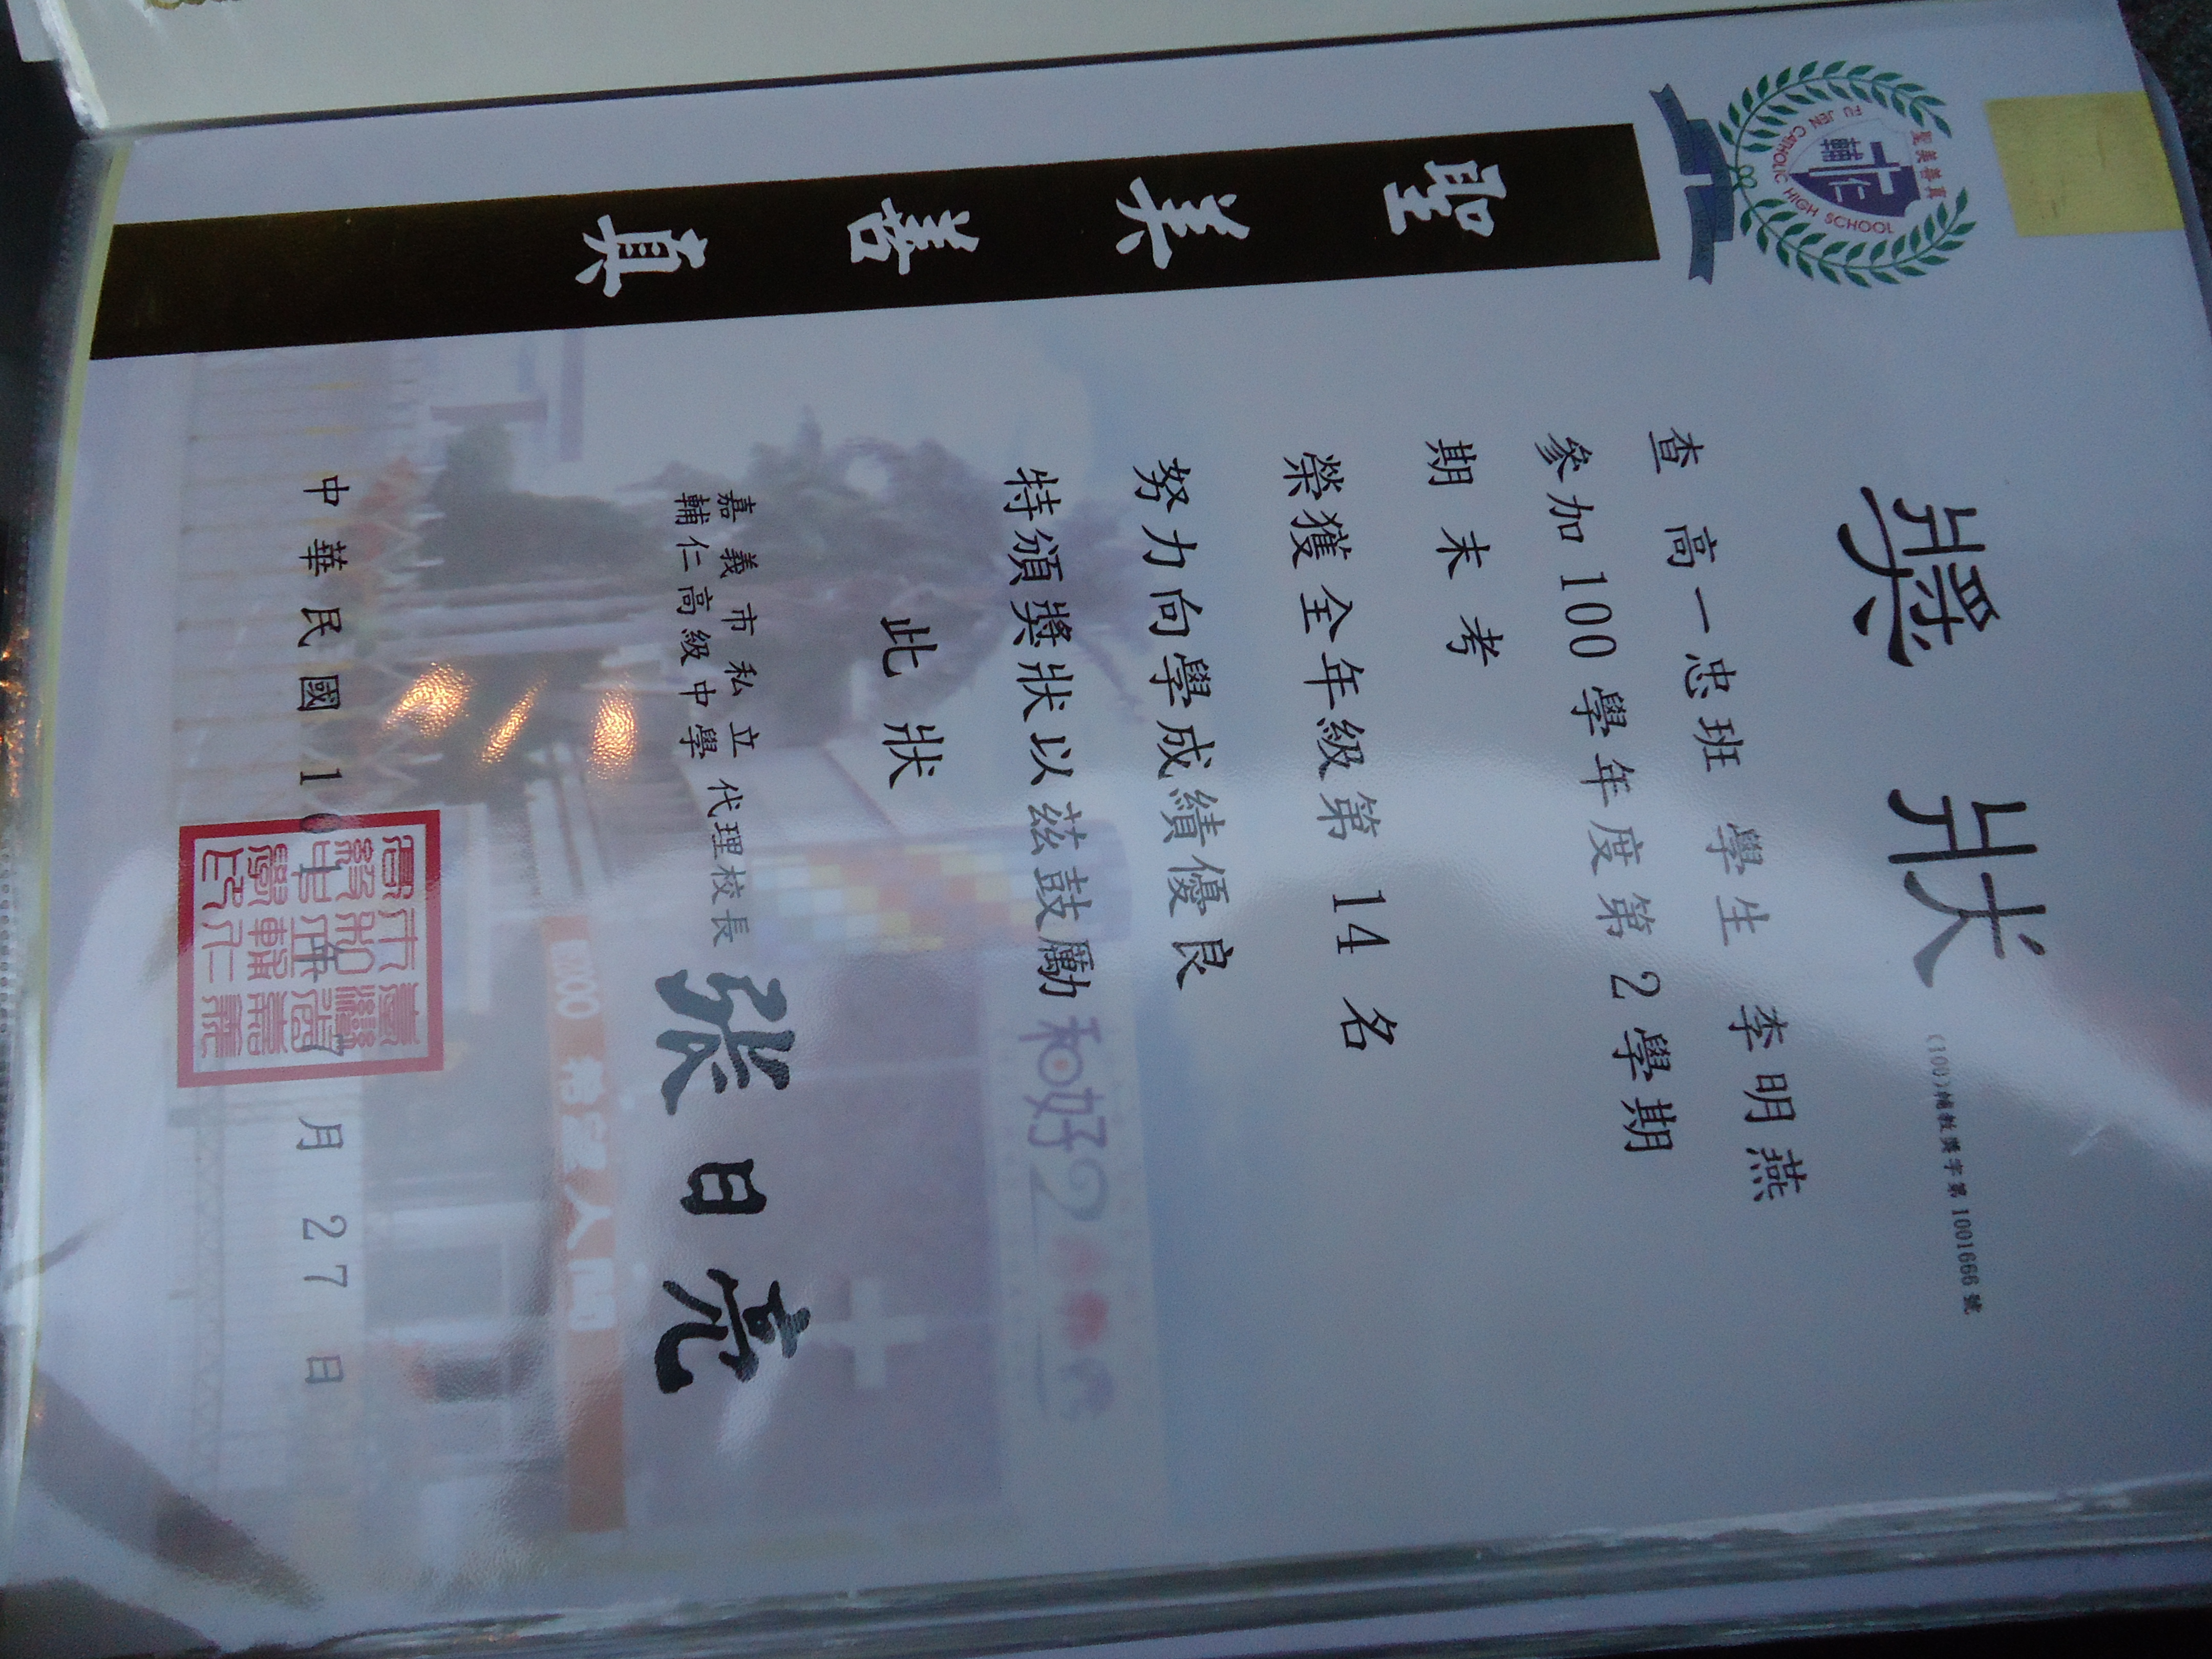 獎狀
(100)輔教獎字第1001666號
聖美善真
輔仁
FU JEN CATHOLIC HIGH SCHOOL
聖美善真
查 高一忠班 學生 李明燕
參加100學年度第2學期
期末考
榮獲全年級第 14 名
努力向學成績優良
特頒獎狀以茲鼓勵
此狀
嘉義市私立
輔仁高級中學
代理校長 張日亮
中華民國10 年 7 月 27 日
和好